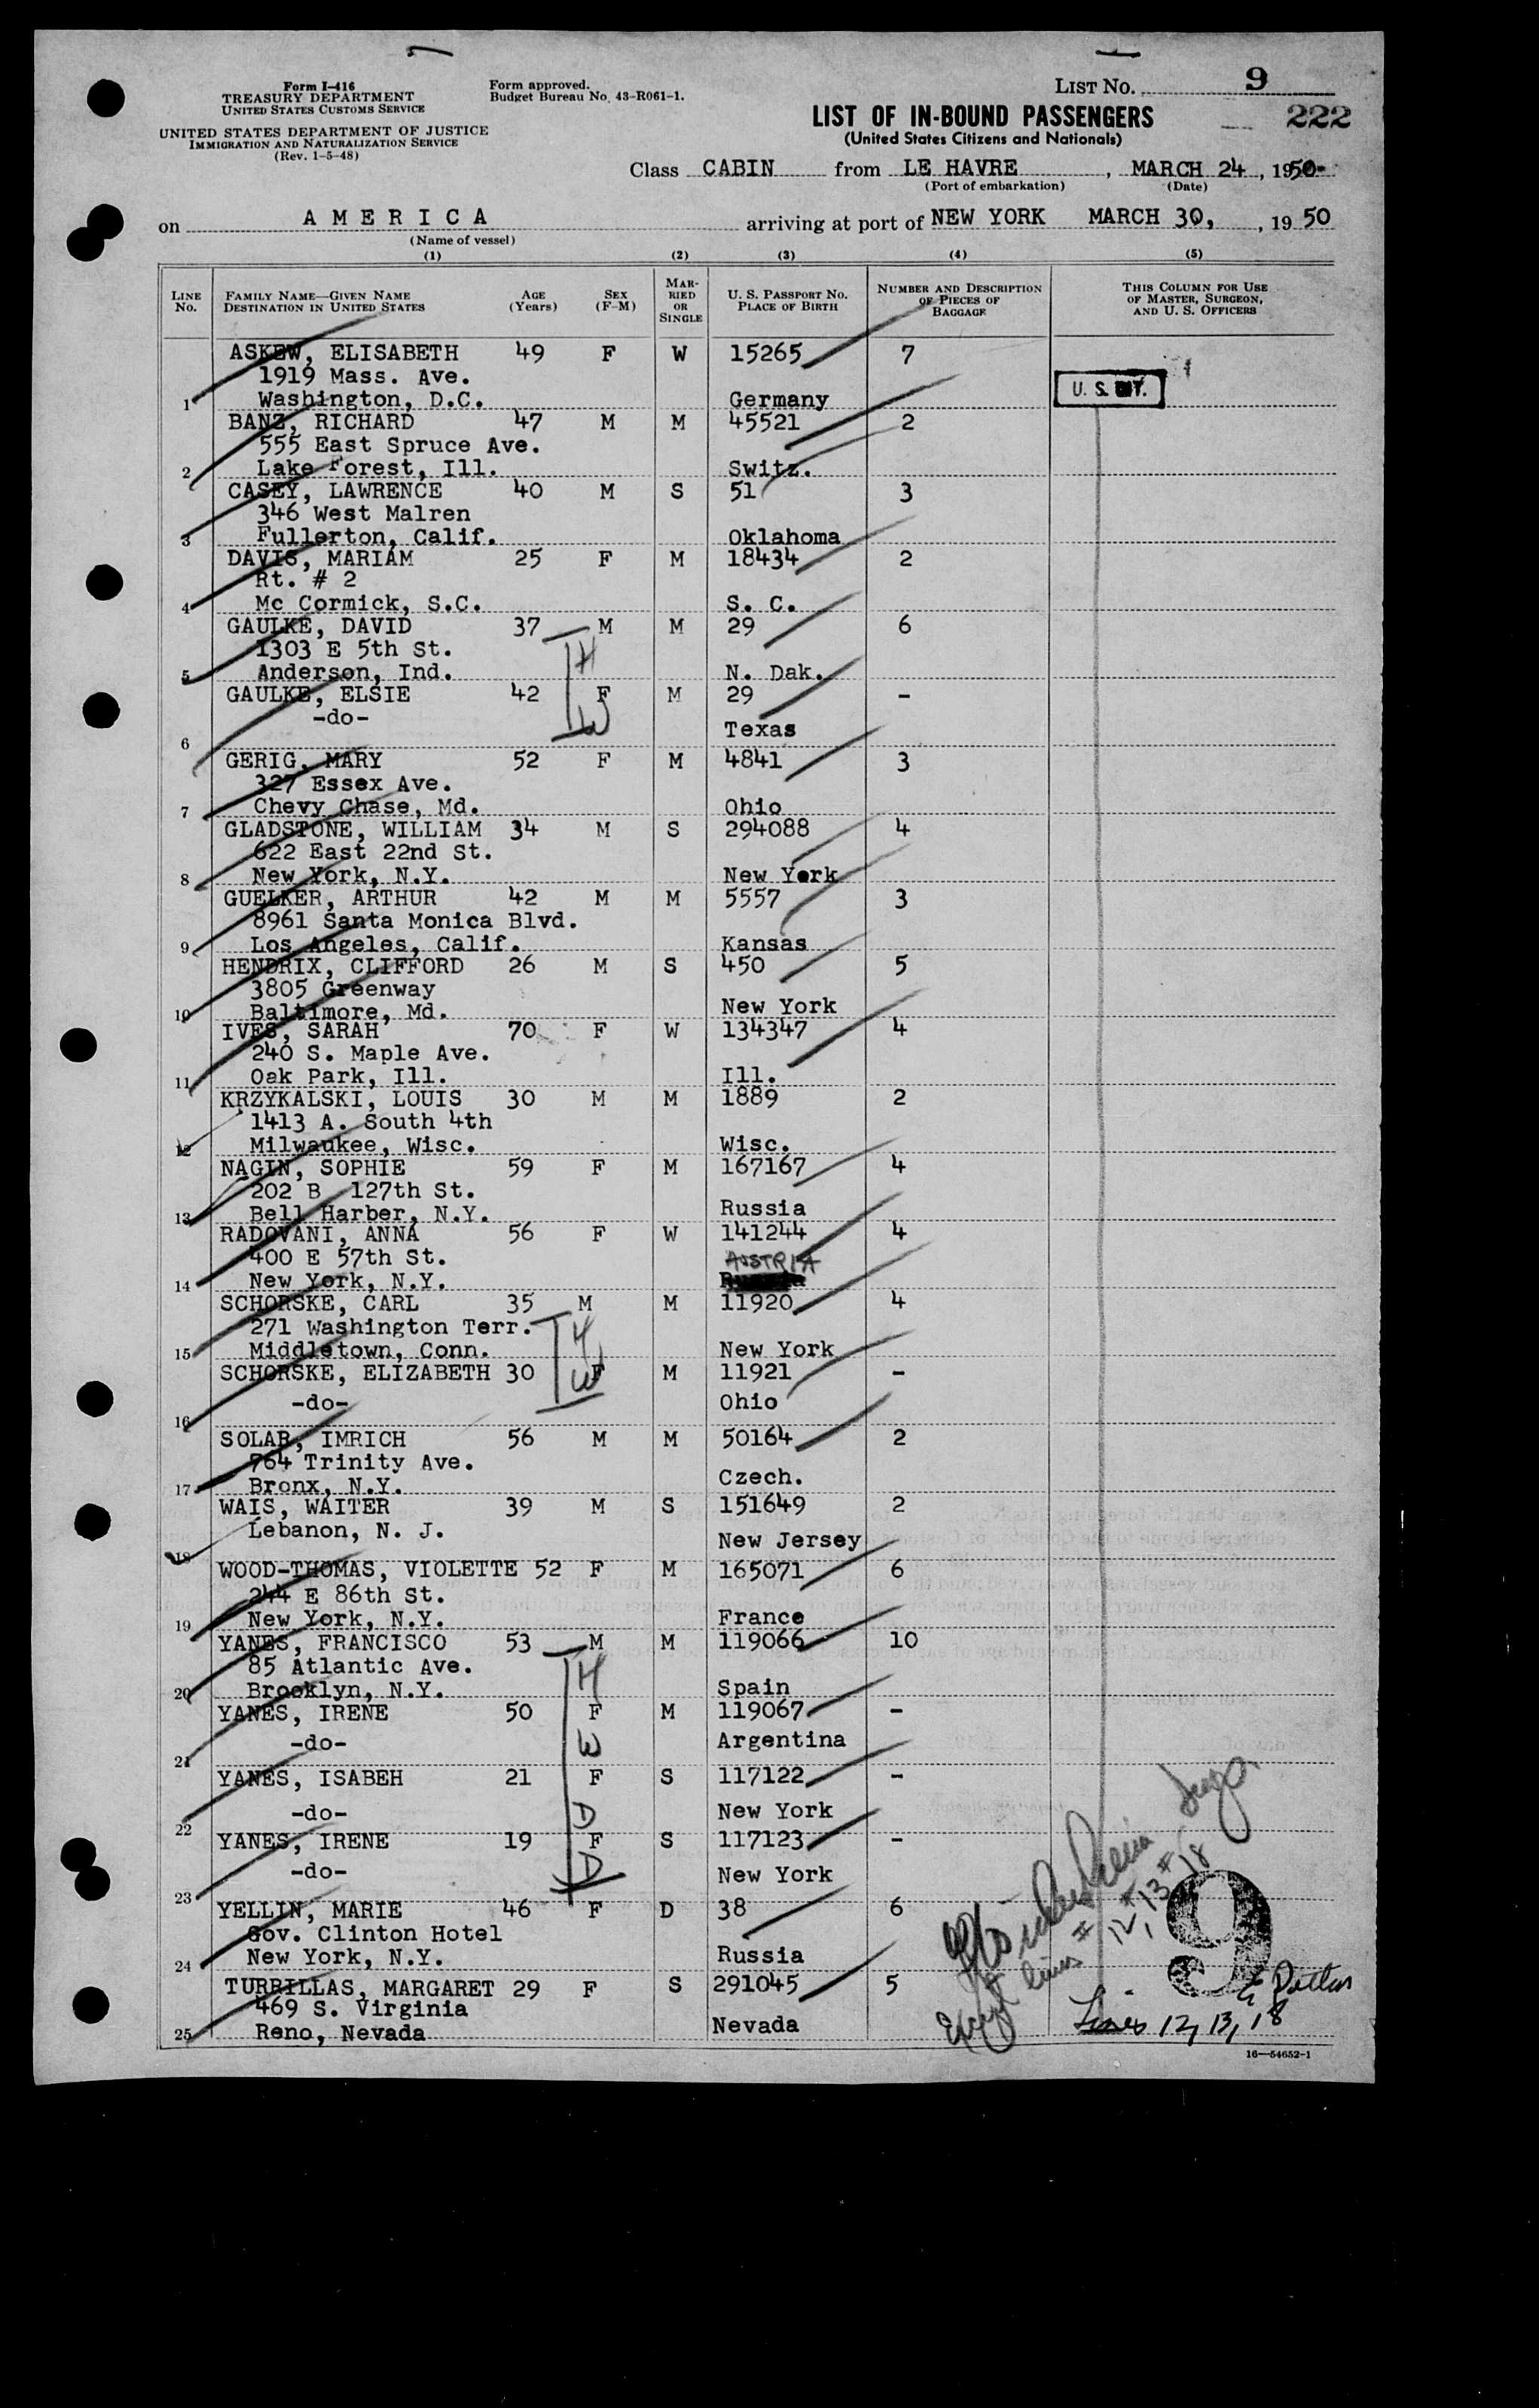 Form I-416
TREASURY DEPARTMENT
UNITED STATES CUSTOMS SERVICE
UNITED STATES DEPARTMENT OF JUSTICE
IMMIGRATION AND NATURALIZATION SERVICE
(Rev. 1-5-48)
Form approved.
Budget Bureau No. 43-R061-1.
LIST NO. 9
222
LIST OF IN-BOUND PASSENGERS
(United States Citizens and Nationals)
Class CABIN from LE HAVRE, MARCH 24, 1950
(Port of embarkation) (Date)
on AMERICA arriving at port of NEW YORK MARCH 30, , 19 50
(Name of vessel)
(1) (2) (3) (4) (5)
LINE No. FAMILY NAME—GIVEN NAME DESTINATION IN UNITED STATES AGE (Years) SEX (F-M) MARRIED OR SINGLE U. S. PASSPORT NO. PLACE OF BIRTH NUMBER AND DESCRIPTION OF PIECES OF BAGGAGE THIS COLUMN FOR USE OF MASTER, SURGEON, AND U. S. OFFICERS
ASKEW, ELISABETH 49 F W 15265 7
1919 Mass. Ave.
1 Washington, D.C. Germany
U. S. CIT.
BANZ, RICHARD 47 M M 45521 2
555 East Spruce Ave.
2 Lake Forest, Ill. Switz.
CASEY, LAWRENCE 40 M S 51 3
346 West Malren
3 Fullerton, Calif. Oklahoma
DAVIS, MARIAM 25 F M 18434 2
Rt. # 2
4 Mc Cormick, S.C. S. C.
GAULKE, DAVID 37 M M 29 6
1303 E 5th St. H
5 Anderson, Ind. N. Dak.
GAULKE, ELSIE 42 F M 29 -
-do- W
6 Texas
GERIG, MARY 52 F M 4841 3
327 Essex Ave.
7 Chevy Chase, Md. Ohio
GLADSTONE, WILLIAM 34 M S 294088 4
622 East 22nd St.
8 New York, N.Y. New York
GUELKER, ARTHUR 42 M M 5557 3
8961 Santa Monica Blvd.
9 Los Angeles, Calif. Kansas
HENDRIX, CLIFFORD 26 M S 450 5
3805 Greenway
10 Baltimore, Md. New York
IVES, SARAH 70 F W 134347 4
240 S. Maple Ave.
11 Oak Park, Ill. Ill.
KRZYKALSKI, LOUIS 30 M M 1889 2
1413 A. South 4th
12 Milwaukee, Wisc. Wisc.
NAGIN, SOPHIE 59 F M 167167 4
202 B 127th St.
13 Bell Harber, N.Y. Russia
RADOVANI, ANNA 56 F W 141244 4
400 E 57th St. AUSTRIA
14 New York, N.Y. Russia
SCHORSKE, CARL 35 M M 11920 4
271 Washington Terr. H
15 Middletown, Conn. New York
SCHORSKE, ELIZABETH 30 F M 11921 -
W
16 -do- Ohio
SOLAR, IMRICH 56 M M 50164 2
764 Trinity Ave.
17 Bronx, N.Y. Czech.
WAIS, WAITER 39 M S 151649 2
Lebanon, N. J.
18 New Jersey
WOOD-THOMAS, VIOLETTE 52 F M 165071 6
244 E 86th St.
19 New York, N.Y. France
YANES, FRANCISCO 53 M M 119066 10
85 Atlantic Ave. H
20 Brooklyn, N.Y. Spain
YANES, IRENE 50 F M 119067 -
21 -do- W Argentina
YANES, ISABEH 21 F S 117122 -
22 -do- D New York
YANES, IRENE 19 F S 117123 -
23 -do- D New York
YELLIN, MARIE 46 F D 38 6
Gov. Clinton Hotel
24 New York, N.Y. Russia
TURRILLAS, MARGARET 29 F S 291045 5
469 S. Virginia
25 Reno, Nevada Nevada
Except lines # 12, # 13, # 18
9
Lines 12, 13, 18
16—54652-1